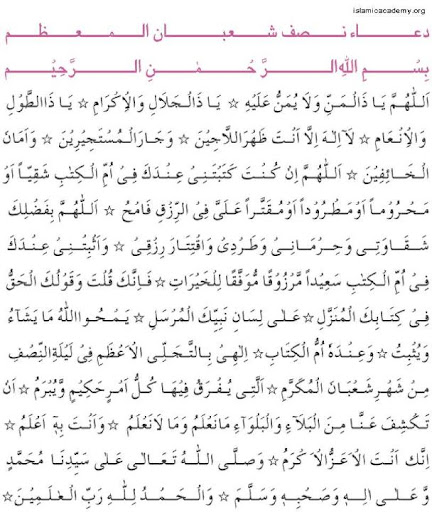 islamicacademy.org
دعاء نصف شعبان المعظم
بِسْمِ اللهِ الرَّحْمٰنِ الرَّحِيْمِ
اَللّٰهُمَّ يَا ذَالْمَنِّ وَلَا يُمَنُّ عَلَيْهِ ☆ يَا ذَالْجَلَالِ وَالْاِكْرَامِ ☆ يَا ذَاالطَّوْلِ
وَالْاِنْعَامِ ☆ لَآاِلٰهَ اِلَّا اَنْتَ ظَهْرُاللَّاجِيْنَ ☆ وَجَارُالْمُسْتَجِيْرِيْنَ ☆ وَاَمَانَ
الْخَائِفِيْنَ ☆ اَللّٰهُمَّ اِنْ كُنْتَ كَتَبْتَنِيْ عِنْدَكَ فِيْ اُمِّ الْكِتٰبِ شَقِيًّا اَوْ
مَحْرُوْمًا اَوْمَطْرُوْدًا اَوْمُقَتَّرًا عَلَيَّ فِي الرِّزْقِ فَامْحُ ☆ اَللّٰهُمَّ بِفَضْلِكَ
شَقَاوَتِيْ وَحِرْمَانِيْ وَطَرْدِيْ وَاقْتِتَارَ رِزْقِيْ ☆ وَاَثْبِتْنِيْ عِنْدَكَ
فِيْ اُمِّ الْكِتٰبِ سَعِيْدًا مَّرْزُوْقًا مُّوَفَّقًا لِّلْخَيْرَاتِ ☆ فَاِنَّكَ قُلْتَ وَقَوْلُكَ الْحَقُّ
فِيْ كِتَابِكَ الْمُنَزَّلِ ☆ عَلٰى لِسَانِ نَبِيِّكَ الْمُرْسَلِ ☆ يَمْحُوااللهُ مَا يَشَآءُ
وَيُثْبِتُ ☆ وَعِنْدَهٗ اُمُّ الْكِتَابِ☆ اِلٰهِيْ بِالتَّجَلِّي الْاَعْظَمِ فِيْ لَيْلَةِالنِّصْفِ
مِنْ شَهْرِشَعْبَانَ الْمُكَرَّمِ ☆ اَلَّتِيْ يُفْرَقُ فِيْهَا كُلُّ اَمْرٍحَكِيْمٍ وَّيُبْرَمُ ☆ اَنْ
تَكْشِفَ عَنَّا مِنَ الْبَلَآءِ وَالْبَلْوَاءِ مَانَعْلَمُ وَمَا لَانَعْلَمُ ☆ وَاَنْتَ بِهٖٓ اَعْلَمُ ☆
اِنَّكَ اَنْتَ الْاَعَزُّالْاَكْرَمُ ☆ وَصَلَّى اللهُ تَعَالٰى عَلٰى سَيِّدِنَا مُحَمَّدٍ
وَّ عَلٰى اٰلِهٖ وَصَحْبِهٖ وَسَلَّمَ ☆ وَالْحَمْدُ لِلّٰهِ رَبِّ الْعٰلَمِيْنَ☆